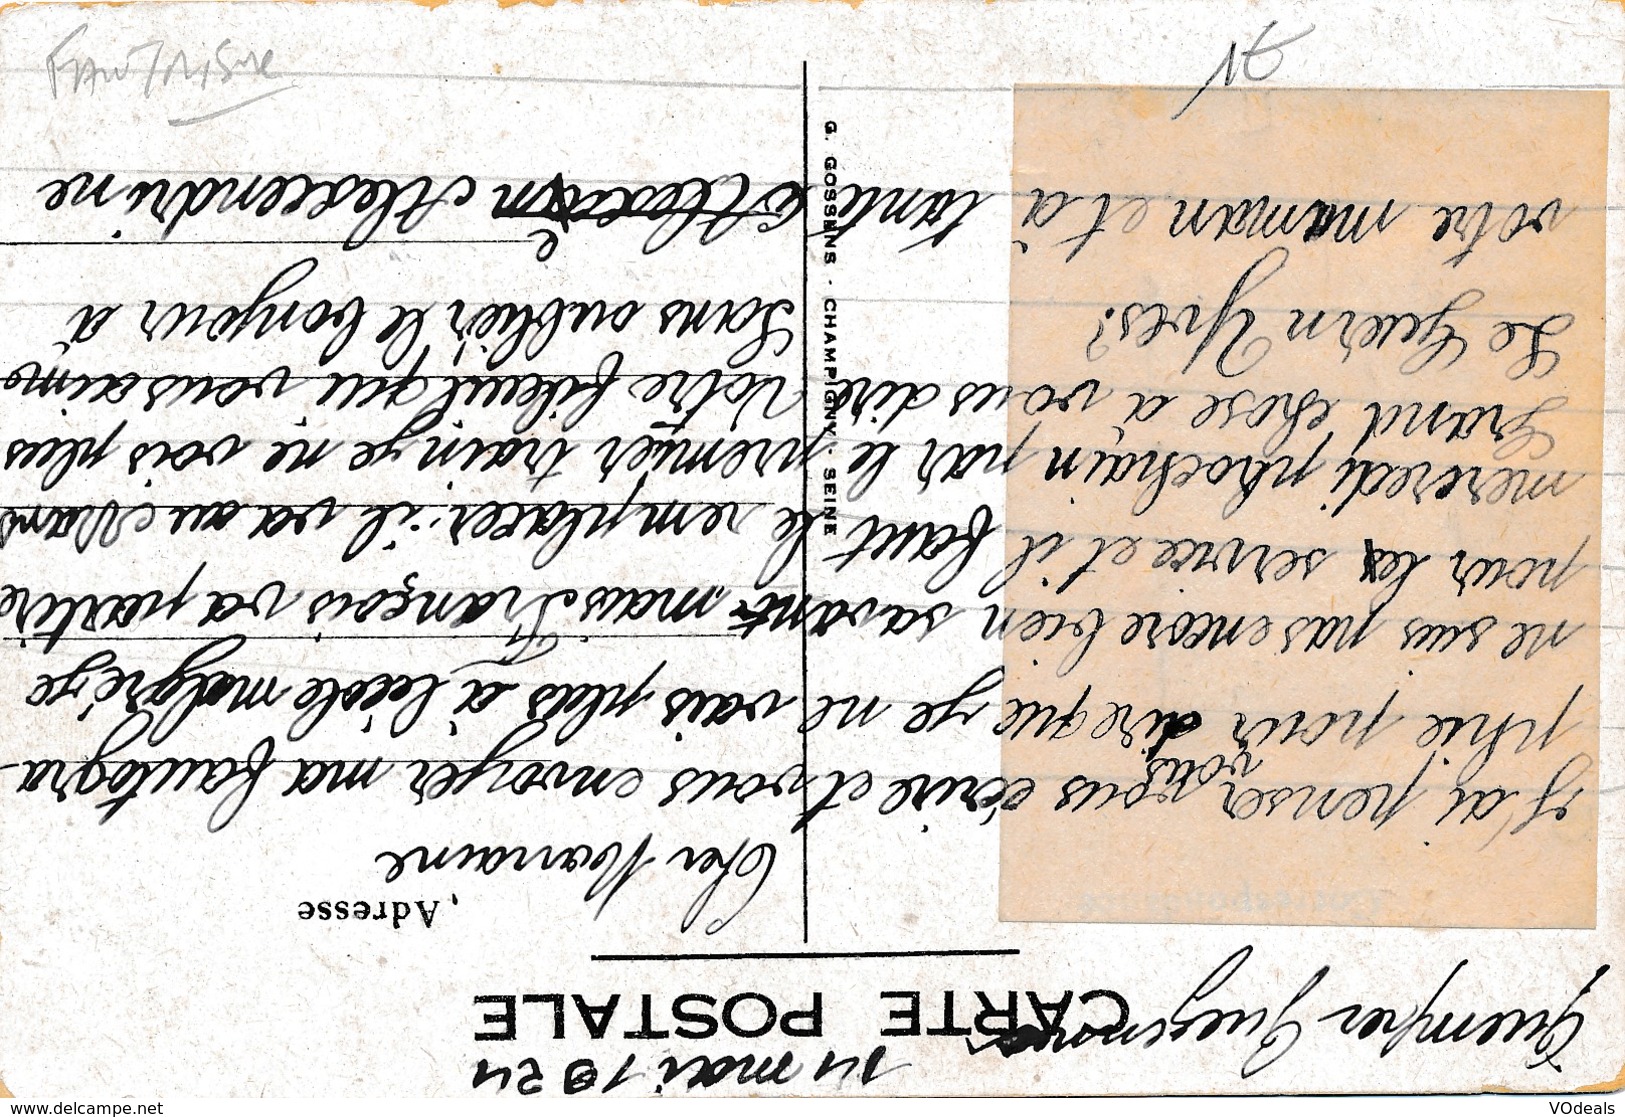 Quemper Guezennec 14 mai 1924
CARTE POSTALE
Adresse
Cher Marraine
J'ai penser vous écrire et vous envoyer ma fautogra
phie pour vous dire que je ne vais plus à lécole malgré je
ne suis pas encore bien savant mais François va partire
pour le service et il faut le remplacer; il va au Mans
mercredi prochain par le premier train, je ne vois plus
Grand chose a vous dire Votre filleul qui vous aime
Le Guern Yves? Sans oublier le bonjour à
votre maman et à tante Alexandrine
G. GOSSENS - CHAMPIGNY - SEINE
FANTAISIE
VOdeals
delcampe.net